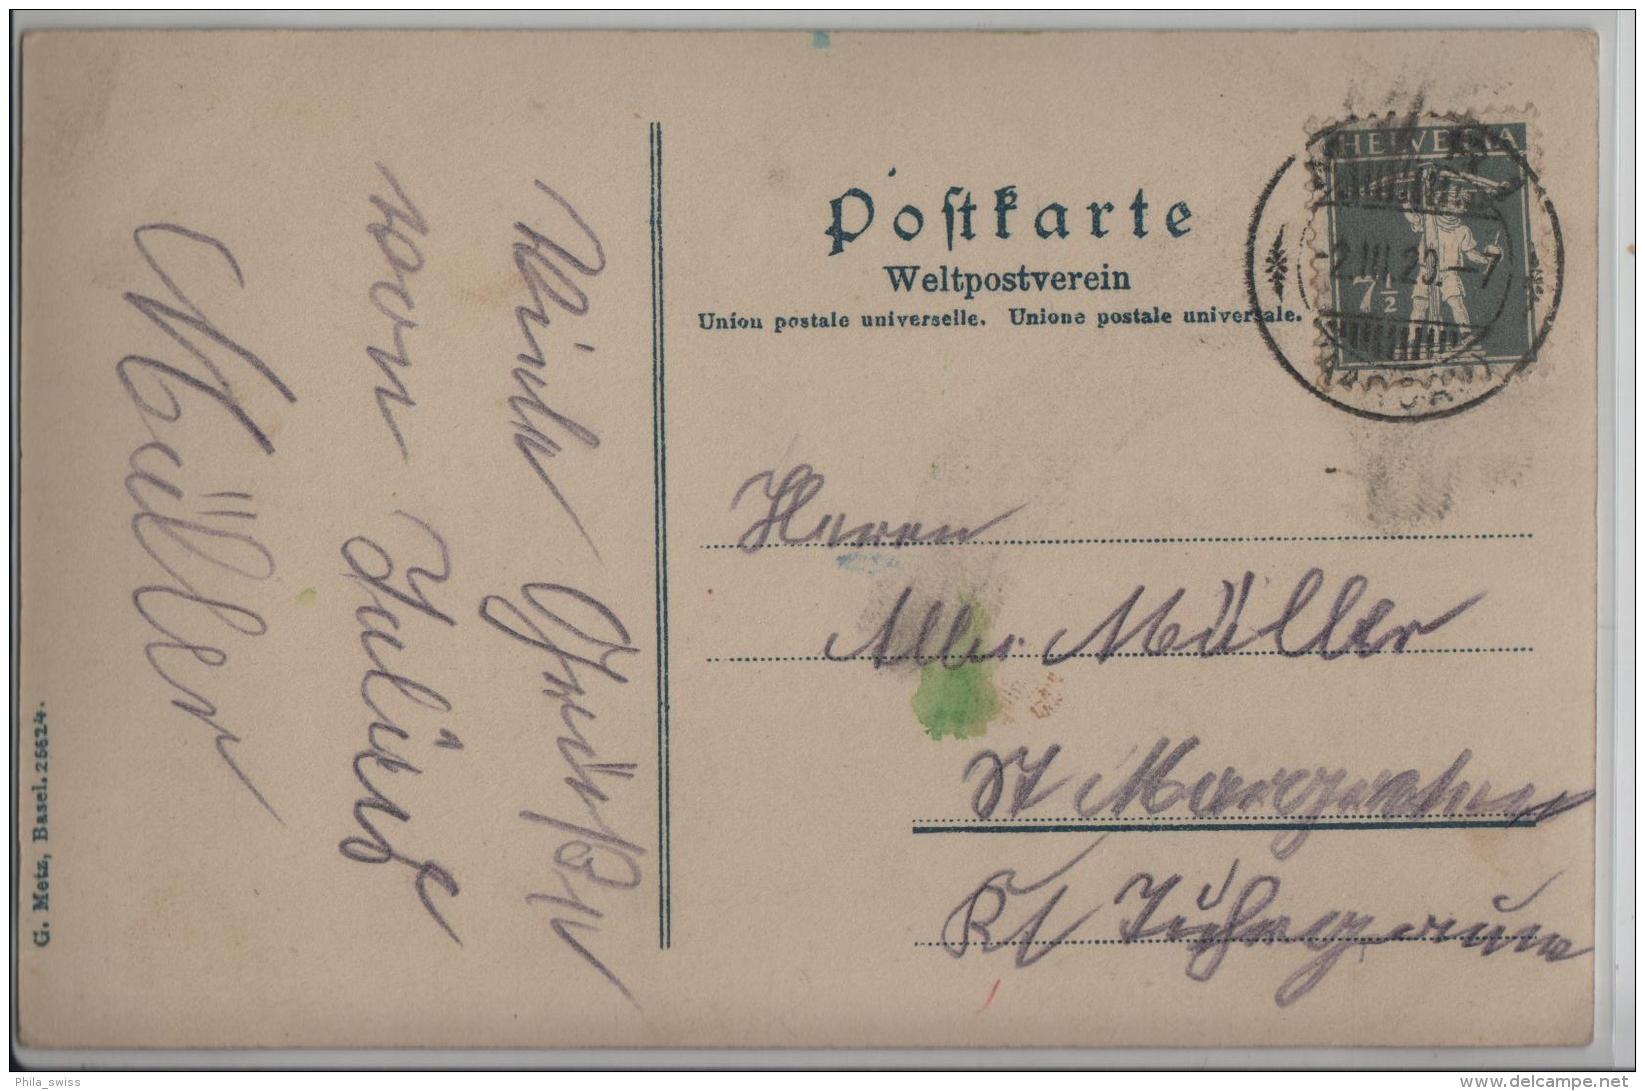 Postkarte
Weltpostverein
Union postale universelle. Unione postale universale.
HELVETIA
7½
2.III.20.-7
Herrn
Müller
St Margrethen
Kt
Viele Grüße
von Julius
Müller
G. Metz, Basel. 25624.
Phila_swiss
delcampe.net